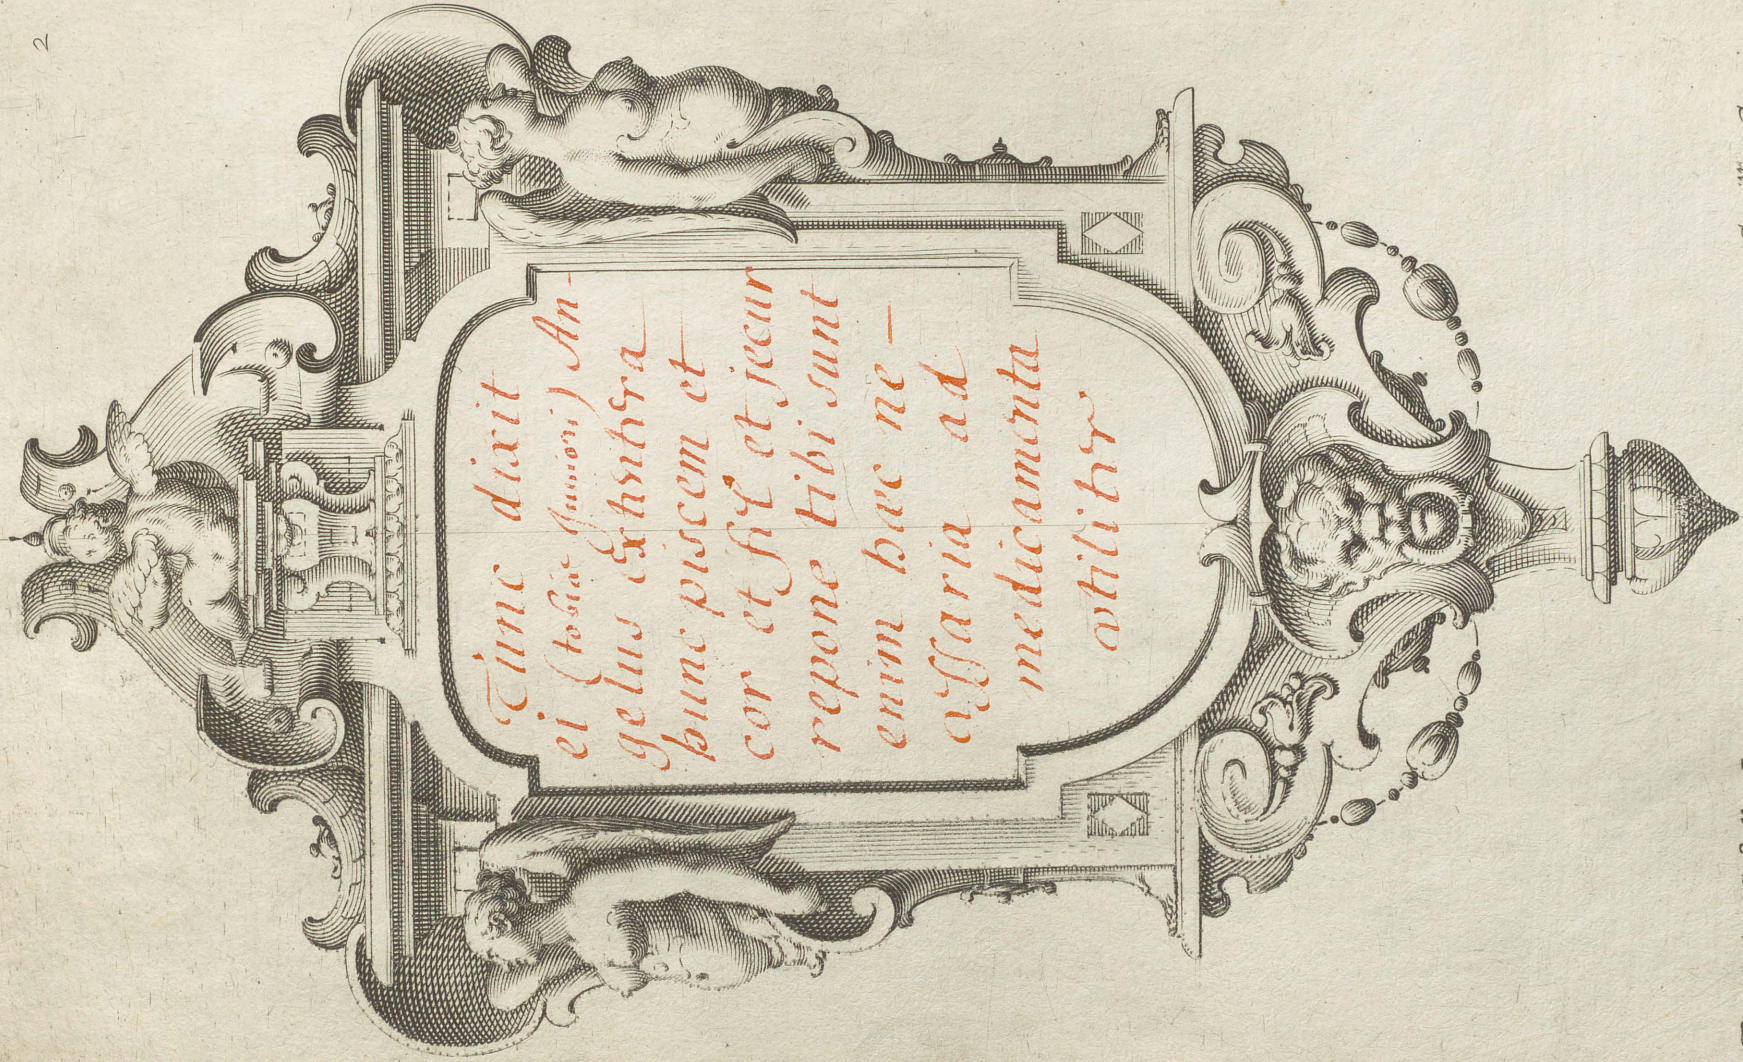 2
Tunc dixit
ei (tobiæ Juniori) An-
gelus Exhentera
hunc piscem et
cor et fel et jecur
repone tibi sunt
enim haec ne—
cessaria ad
medicamenta
utiliter